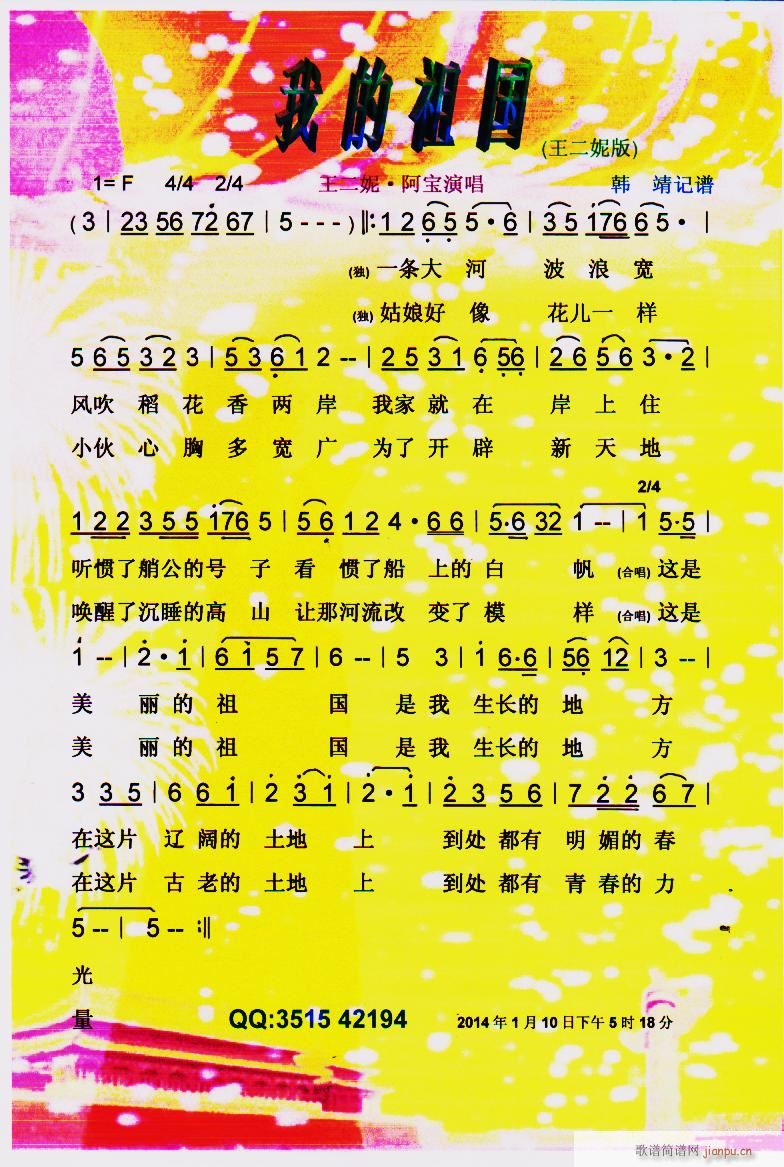 我的祖国
(王二妮版)
1=F 4/4 2/4 王二妮·阿宝演唱 韩 靖记谱
(3 | 23 56 72 67 | 5 - - - ) ‖: 12 65 5·6 | 35 176 65· |
(独) 一条大 河 波 浪 宽
(独) 姑娘好 像 花儿一 样
5 65 32 3 | 53 61 2 -- | 25 31 6 56 | 26 56 3·2 |
风吹 稻 花 香 两 岸 我家 就 在 岸 上 住
小伙 心 胸 多 宽 广 为了 开 辟 新 天 地
2/4
122 355 176 5 | 56 12 4·66 | 5·6 32 1 -- | 1 5·5 |
听惯了艄公的号 子 看 惯了船 上的 白 帆 (合唱) 这是
唤醒了沉睡的高 山 让那河流改 变了 模 样 (合唱) 这是
1 -- | 2·1 | 61 57 | 6 -- | 5 3 | 1 6·6 | 56 12 | 3 -- |
美 丽 的 祖 国 是 我 生长的 地 方
美 丽 的 祖 国 是 我 生长的 地 方
3 335 | 6 61 | 2 31 | 2·1 | 23 56 | 7 22 67 |
在这片 辽 阔的 土地 上 到处 都有 明 媚的 春
在这片 古 老的 土地 上 到处 都有 青 春的 力
5 -- | 5 -- :‖
光
量
QQ:3515 42194 2014年1月10日下午5时18分
歌谱简谱网 jianpu.cn